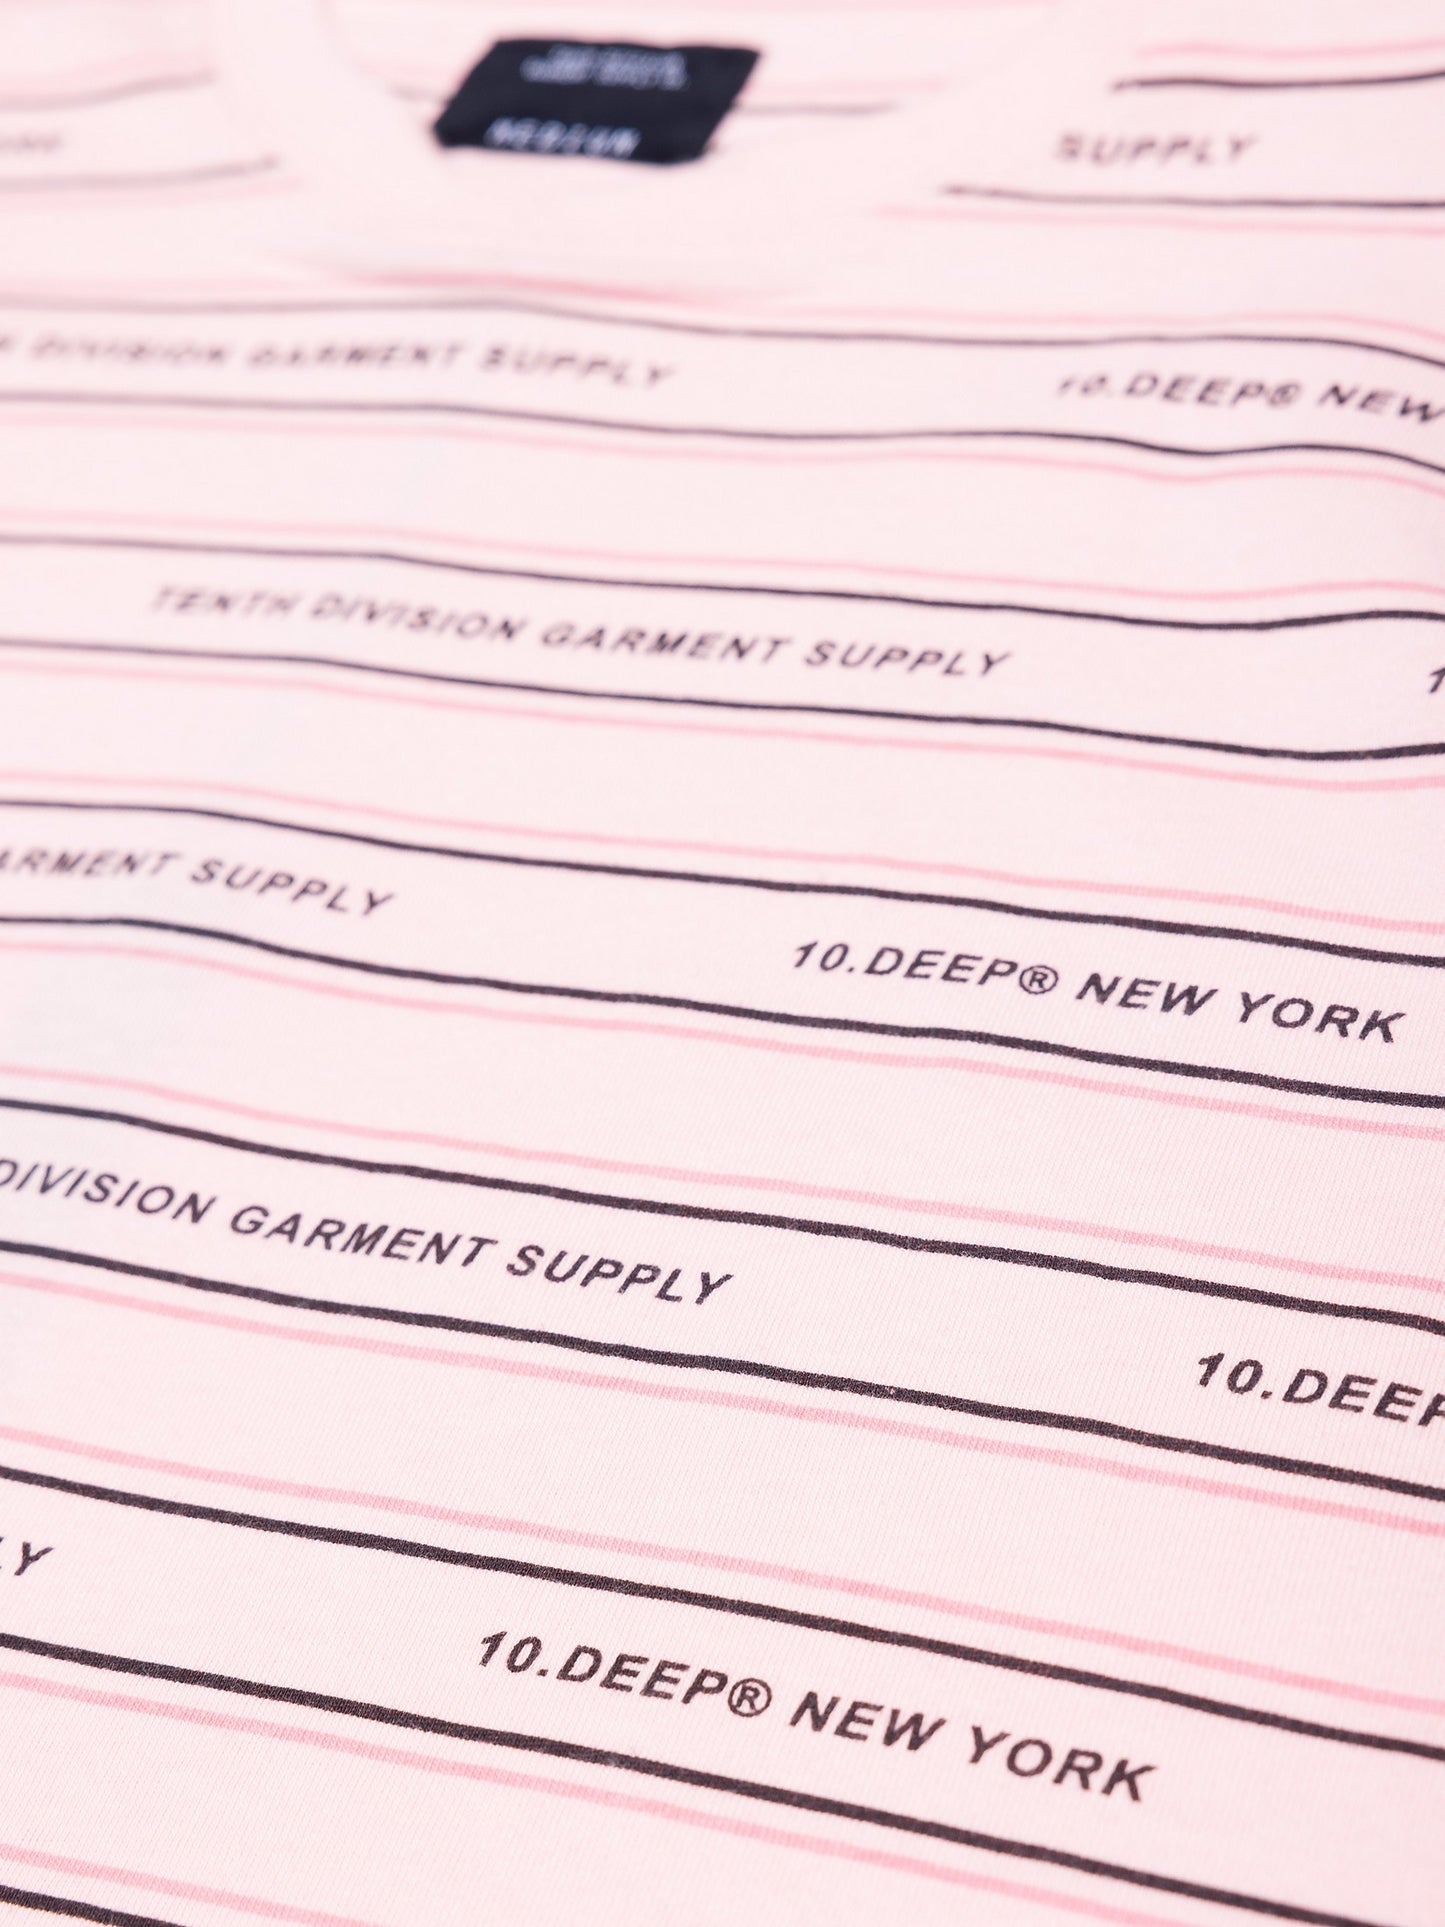 MEDIUM
SUPPLY
DIVISION GARMENT SUPPLY 10.DEEP® NEW
TENTH DIVISION GARMENT SUPPLY
GARMENT SUPPLY 10.DEEP® NEW YORK
DIVISION GARMENT SUPPLY 10.DEEP
LY 10.DEEP® NEW YORK